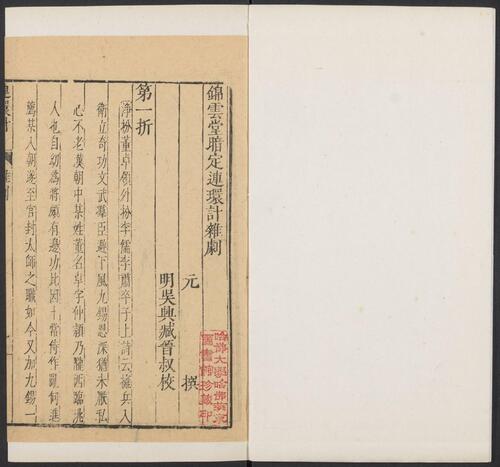 錦雲堂暗定連環計雜劇
元　撰
明吳興臧晉叔校
第一折
淨扮董卓領外扮李儒李肅卒子上詩云擁兵入
衛立奇功文武羣臣避下風九錫恩深猶未厭私
心不老漢朝中某姓董名卓字仲穎乃隴西臨洮
人也自幼為將頗有邊功比因十常侍作亂何進
薦某入朝遂至官封太師之職如今又加九錫一
連環計
雜劇
一
哈佛大學哈佛燕京
圖書館珍藏印